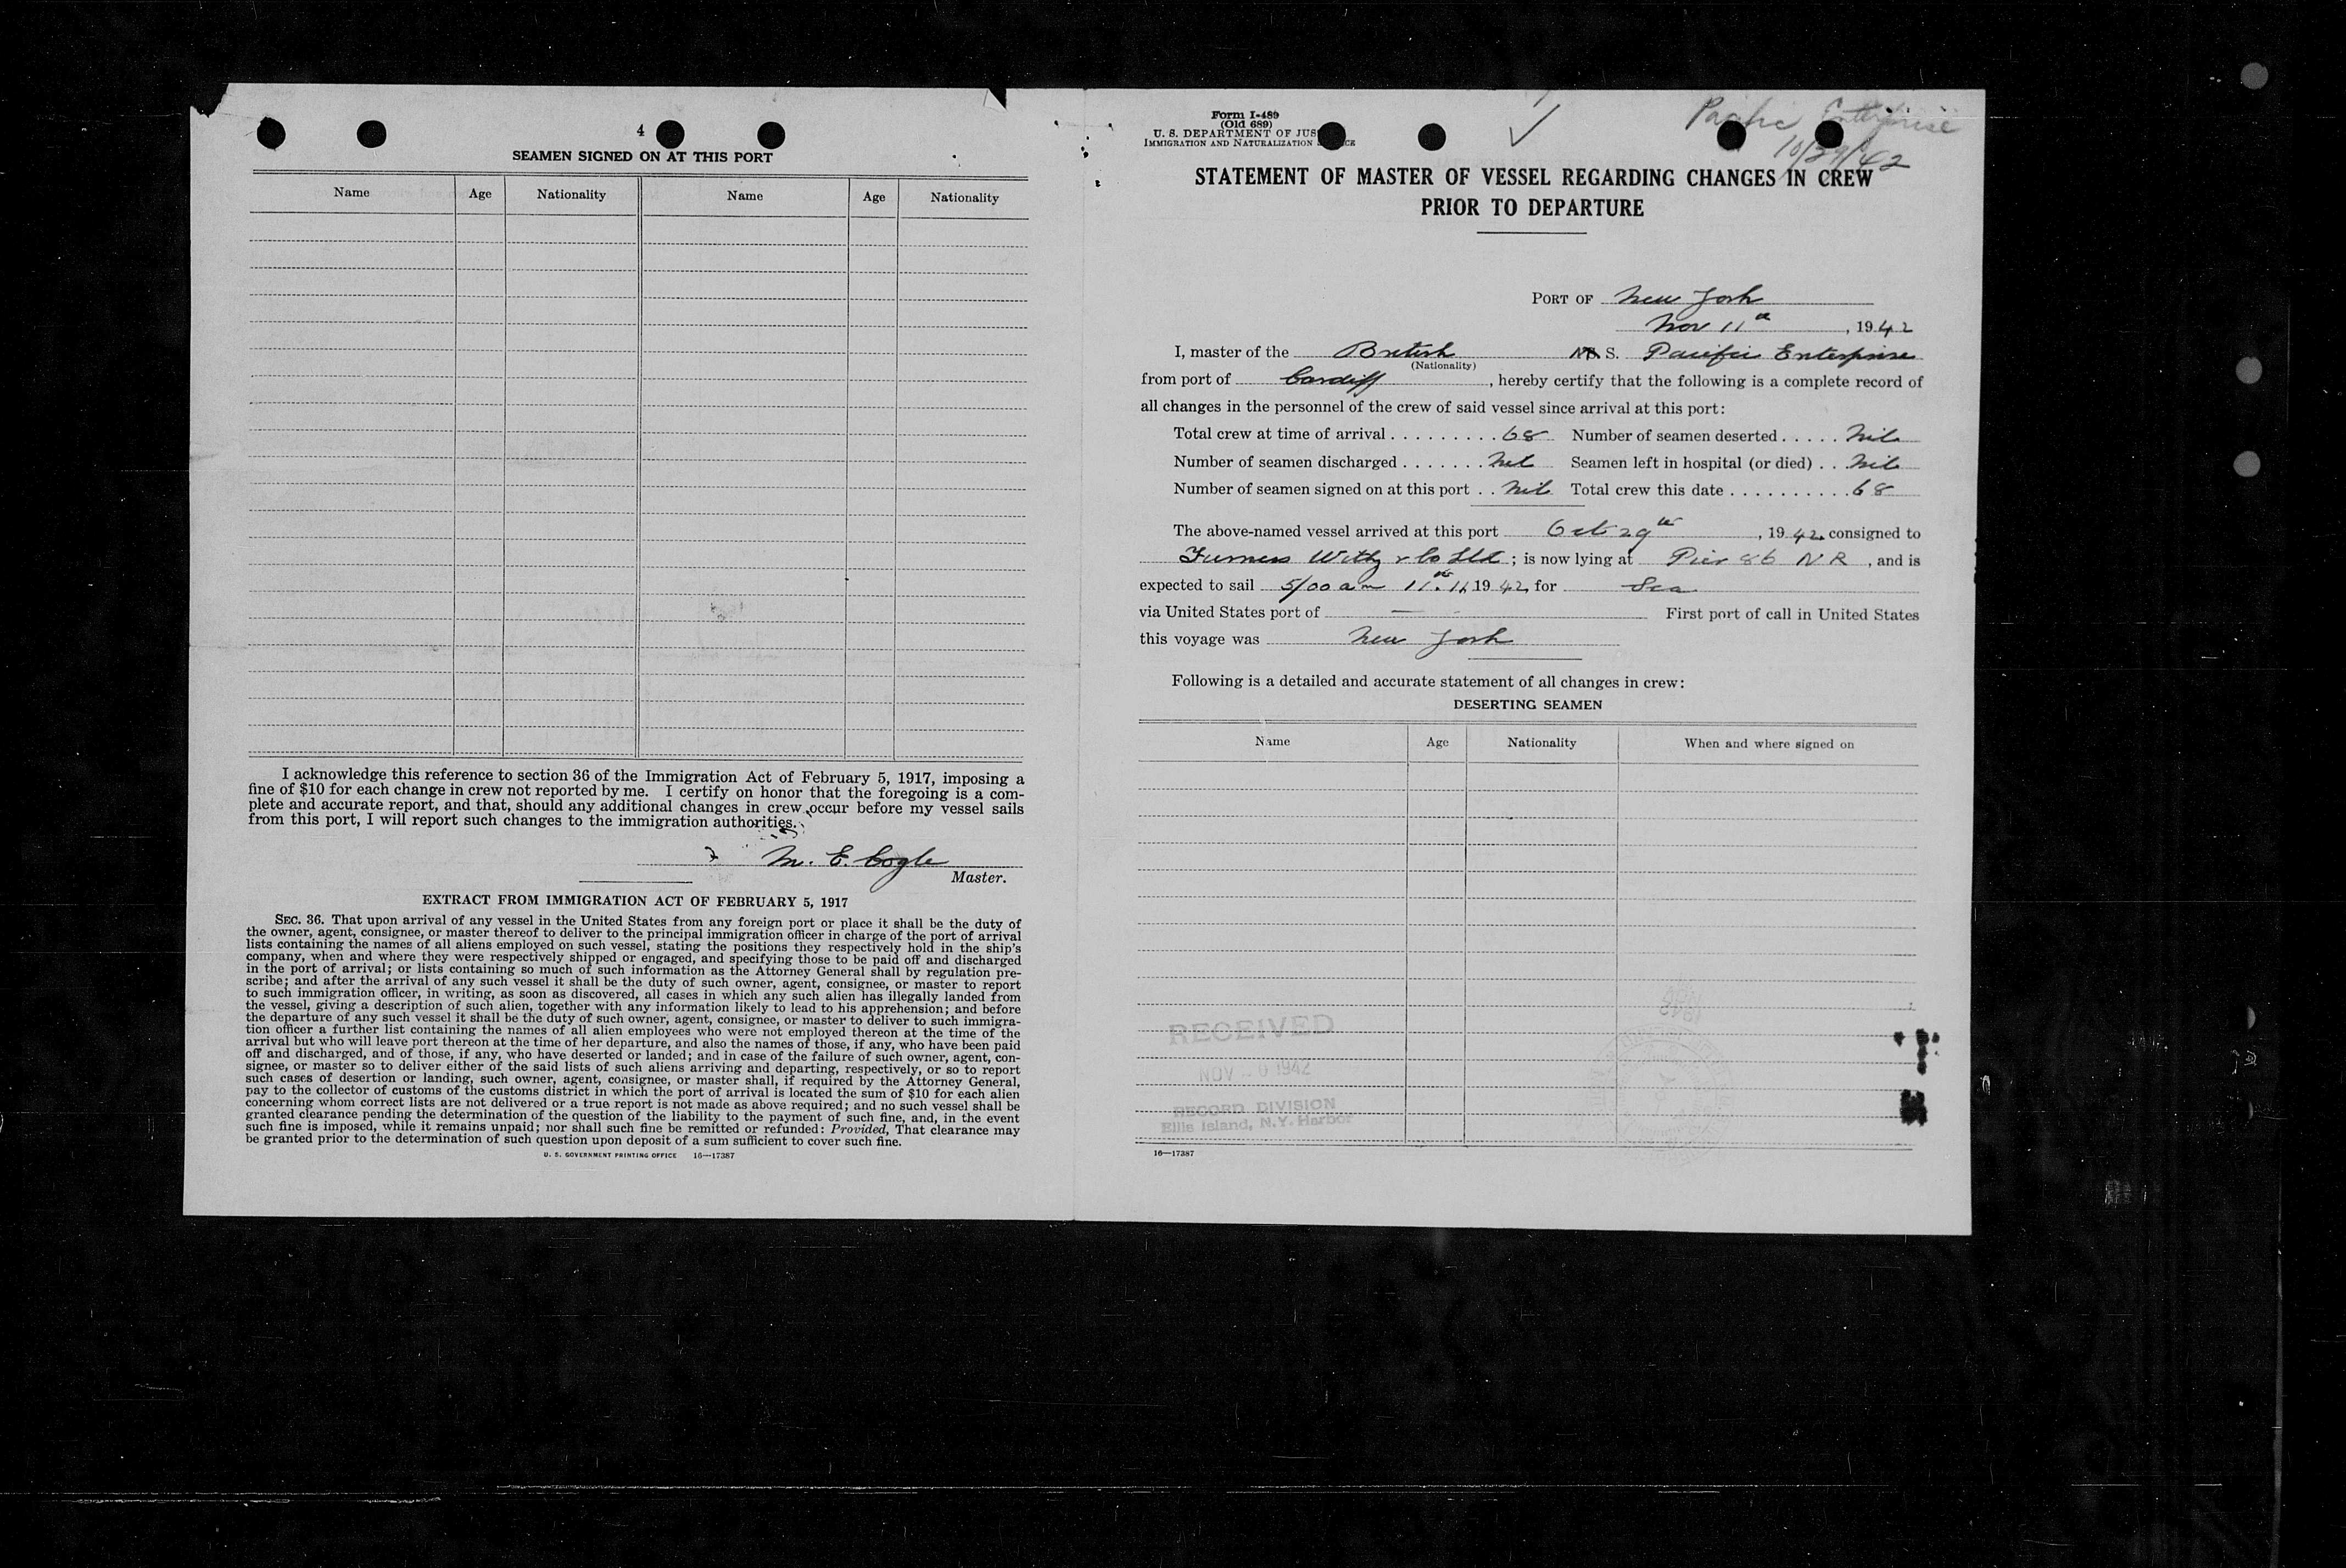 4
SEAMEN SIGNED ON AT THIS PORT
Name Age Nationality Name Age Nationality
I acknowledge this reference to section 36 of the Immigration Act of February 5, 1917, imposing a
fine of $10 for each change in crew not reported by me. I certify on honor that the foregoing is a com-
plete and accurate report, and that, should any additional changes in crew occur before my vessel sails
from this port, I will report such changes to the immigration authorities.
M. E. Cogle
Master.
EXTRACT FROM IMMIGRATION ACT OF FEBRUARY 5, 1917
SEC. 36. That upon arrival of any vessel in the United States from any foreign port or place it shall be the duty of
the owner, agent, consignee, or master thereof to deliver to the principal immigration officer in charge of the port of arrival
lists containing the names of all aliens employed on such vessel, stating the positions they respectively hold in the ship's
company, when and where they were respectively shipped or engaged, and specifying those to be paid off and discharged
in the port of arrival; or lists containing so much of such information as the Attorney General shall by regulation pre-
scribe; and after the arrival of any such vessel it shall be the duty of such owner, agent, consignee, or master to report
to such immigration officer, in writing, as soon as discovered, all cases in which any such alien has illegally landed from
the vessel, giving a description of such alien, together with any information likely to lead to his apprehension; and before
the departure of any such vessel it shall be the duty of such owner, agent, consignee, or master to deliver to such immigra-
tion officer a further list containing the names of all alien employees who were not employed thereon at the time of the
arrival but who will leave port thereon at the time of her departure, and also the names of those, if any, who have been paid
off and discharged, and of those, if any, who have deserted or landed; and in case of the failure of such owner, agent, con-
signee, or master so to deliver either of the said lists of such aliens arriving and departing, respectively, or so to report
such cases of desertion or landing, such owner, agent, consignee, or master shall, if required by the Attorney General,
pay to the collector of customs of the customs district in which the port of arrival is located the sum of $10 for each alien
concerning whom correct lists are not delivered or a true report is not made as above required; and no such vessel shall be
granted clearance pending the determination of the question of the liability to the payment of such fine, and, in the event
such fine is imposed, while it remains unpaid; nor shall such fine be remitted or refunded: Provided, That clearance may
be granted prior to the determination of such question upon deposit of a sum sufficient to cover such fine.
U. S. GOVERNMENT PRINTING OFFICE 16—17387
Form I-489
(Old 689)
U. S. DEPARTMENT OF JUS
IMMIGRATION AND NATURALIZATION
Pacific Enterprise
10/29/42
STATEMENT OF MASTER OF VESSEL REGARDING CHANGES IN CREW
PRIOR TO DEPARTURE
PORT OF New York
Nov 11th, 1942
I, master of the British S. Pacific Enterprise
(Nationality)
from port of Cardiff, hereby certify that the following is a complete record of
all changes in the personnel of the crew of said vessel since arrival at this port:
Total crew at time of arrival . . . . . . . . . 68 Number of seamen deserted . . . . . Nil
Number of seamen discharged . . . . . . . Nil Seamen left in hospital (or died) . . Nil
Number of seamen signed on at this port . . Nil Total crew this date . . . . . . . . . . 68
The above-named vessel arrived at this port Oct 29th, 1942 consigned to
Furness Withy & Co Ltd; is now lying at Pier 86 N R, and is
expected to sail 5/00 am 11th.11, 1942, for Sea
via United States port of — First port of call in United States
this voyage was New York
Following is a detailed and accurate statement of all changes in crew:
DESERTING SEAMEN
Name Age Nationality When and where signed on
RECEIVED
NOV 1942
RECORD DIVISION
Ellis Island, N.Y. Harbor
16—17387